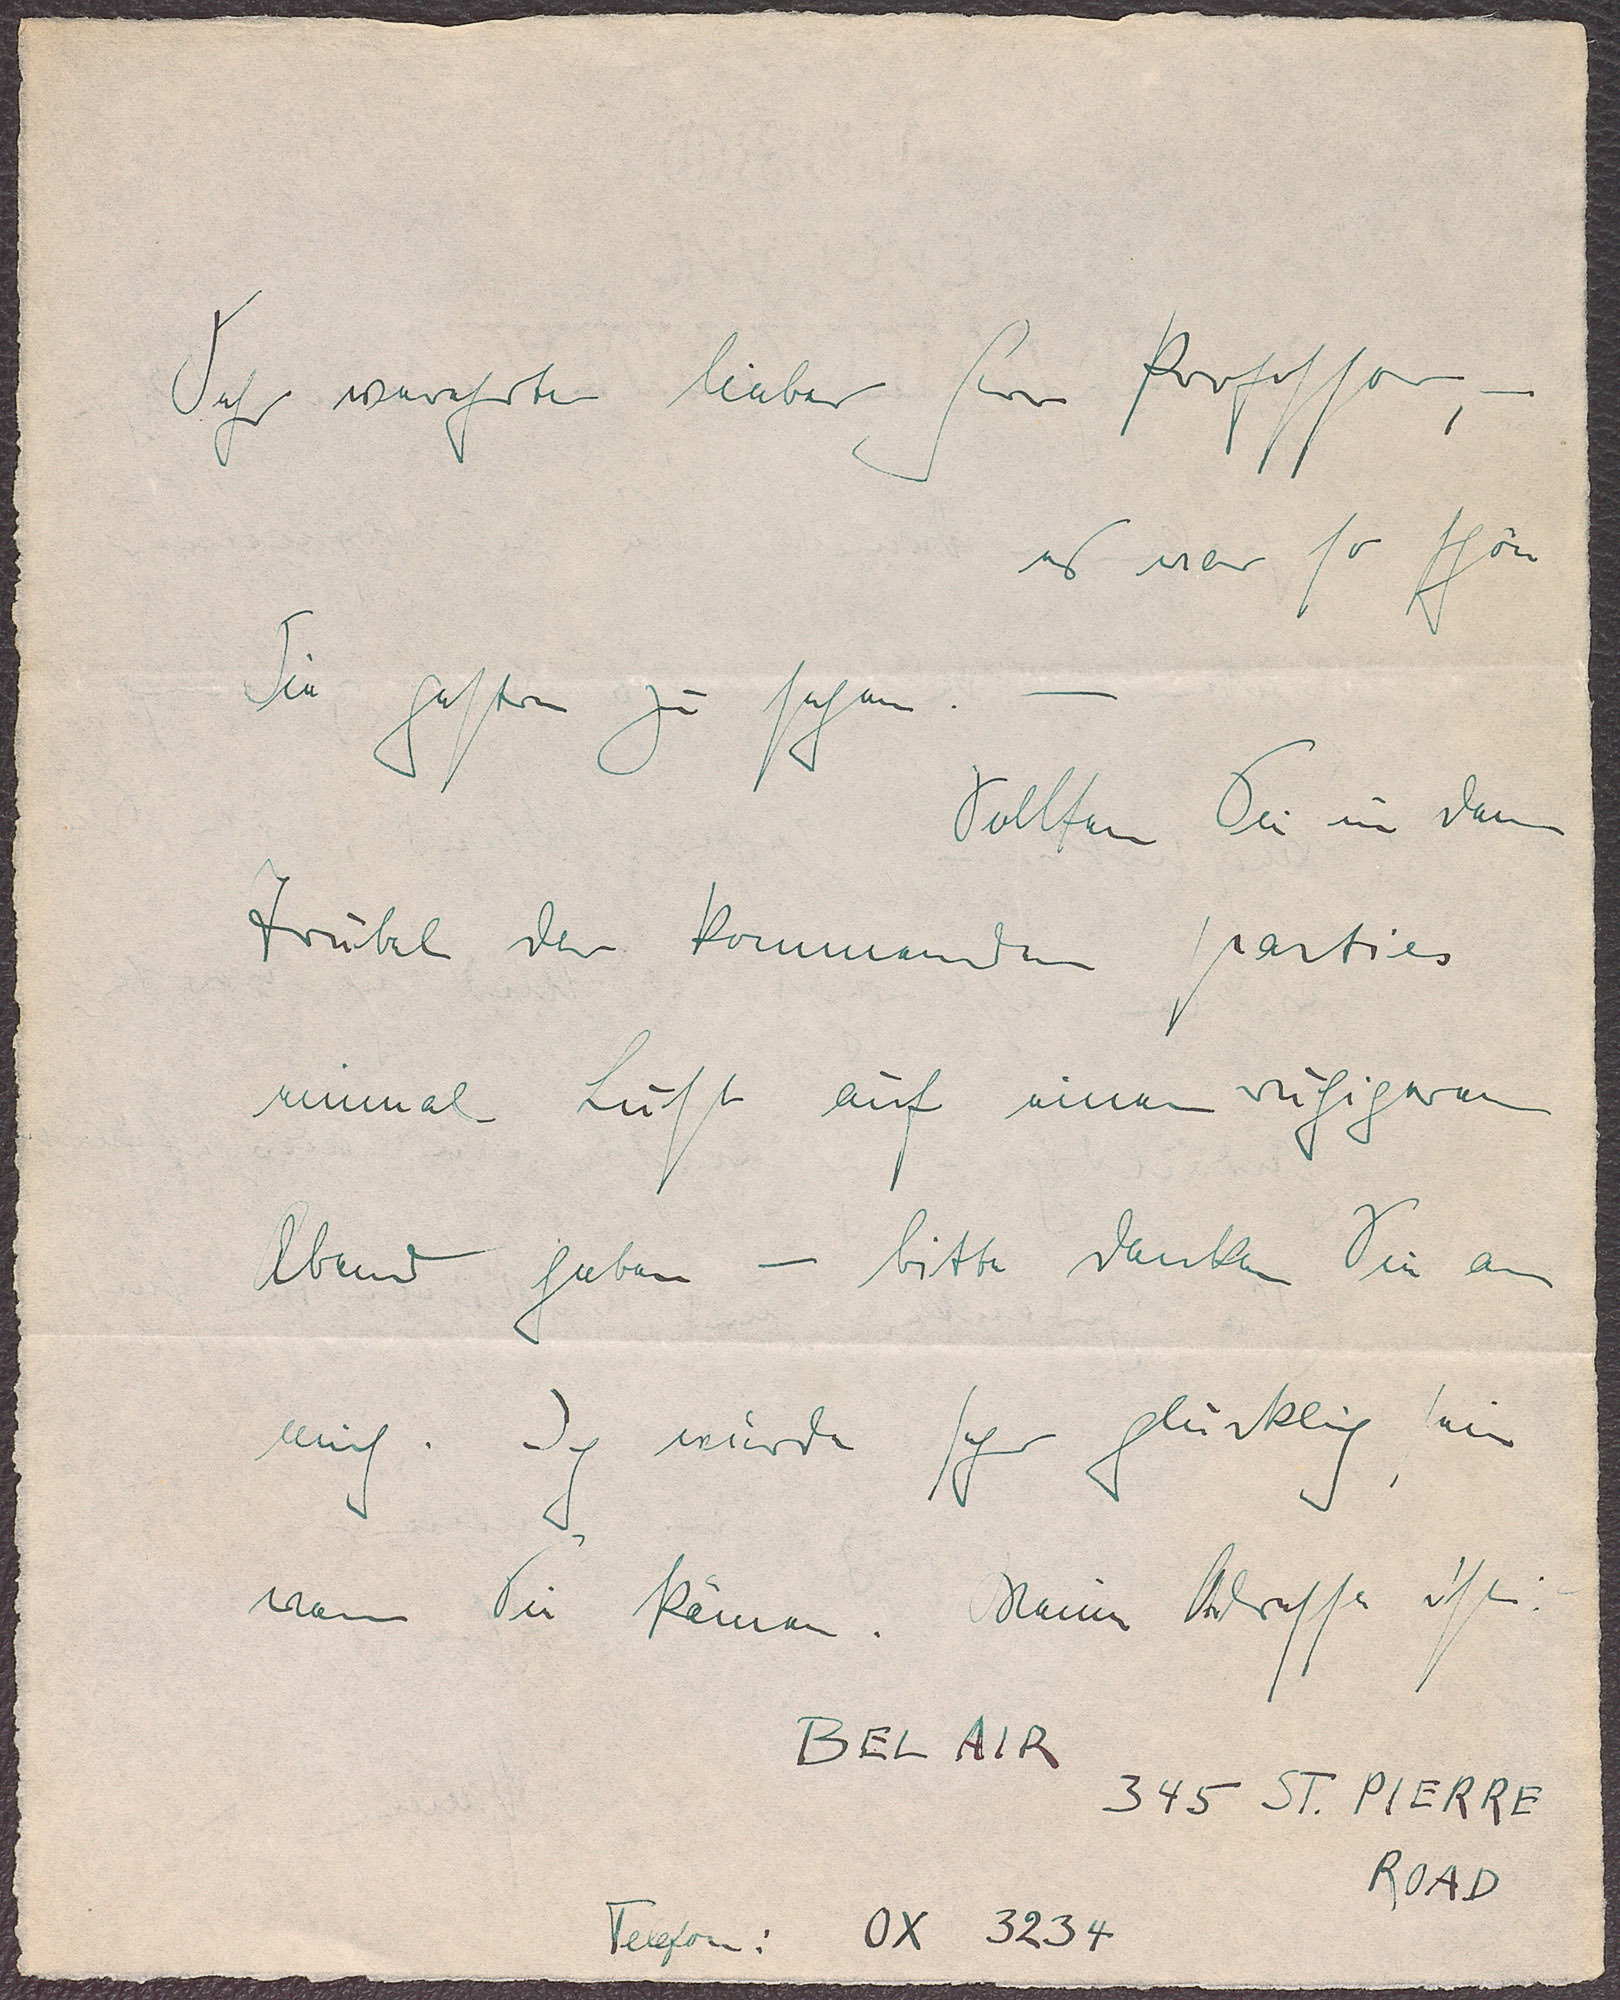 Sehr verehrter lieber Herr Professor, –
es war so schön
Sie gestern zu sehen. —
Sollten Sie in dem
Trubel der kommenden parties
einmal Lust auf einen ruhigeren
Abend haben — bitte denken Sie an
mich. Ich würde sehr glücklich sein
wenn Sie kämen. Meine Adresse ist:
BEL AIR
345 ST. PIERRE
ROAD
Telefon: OX 3234